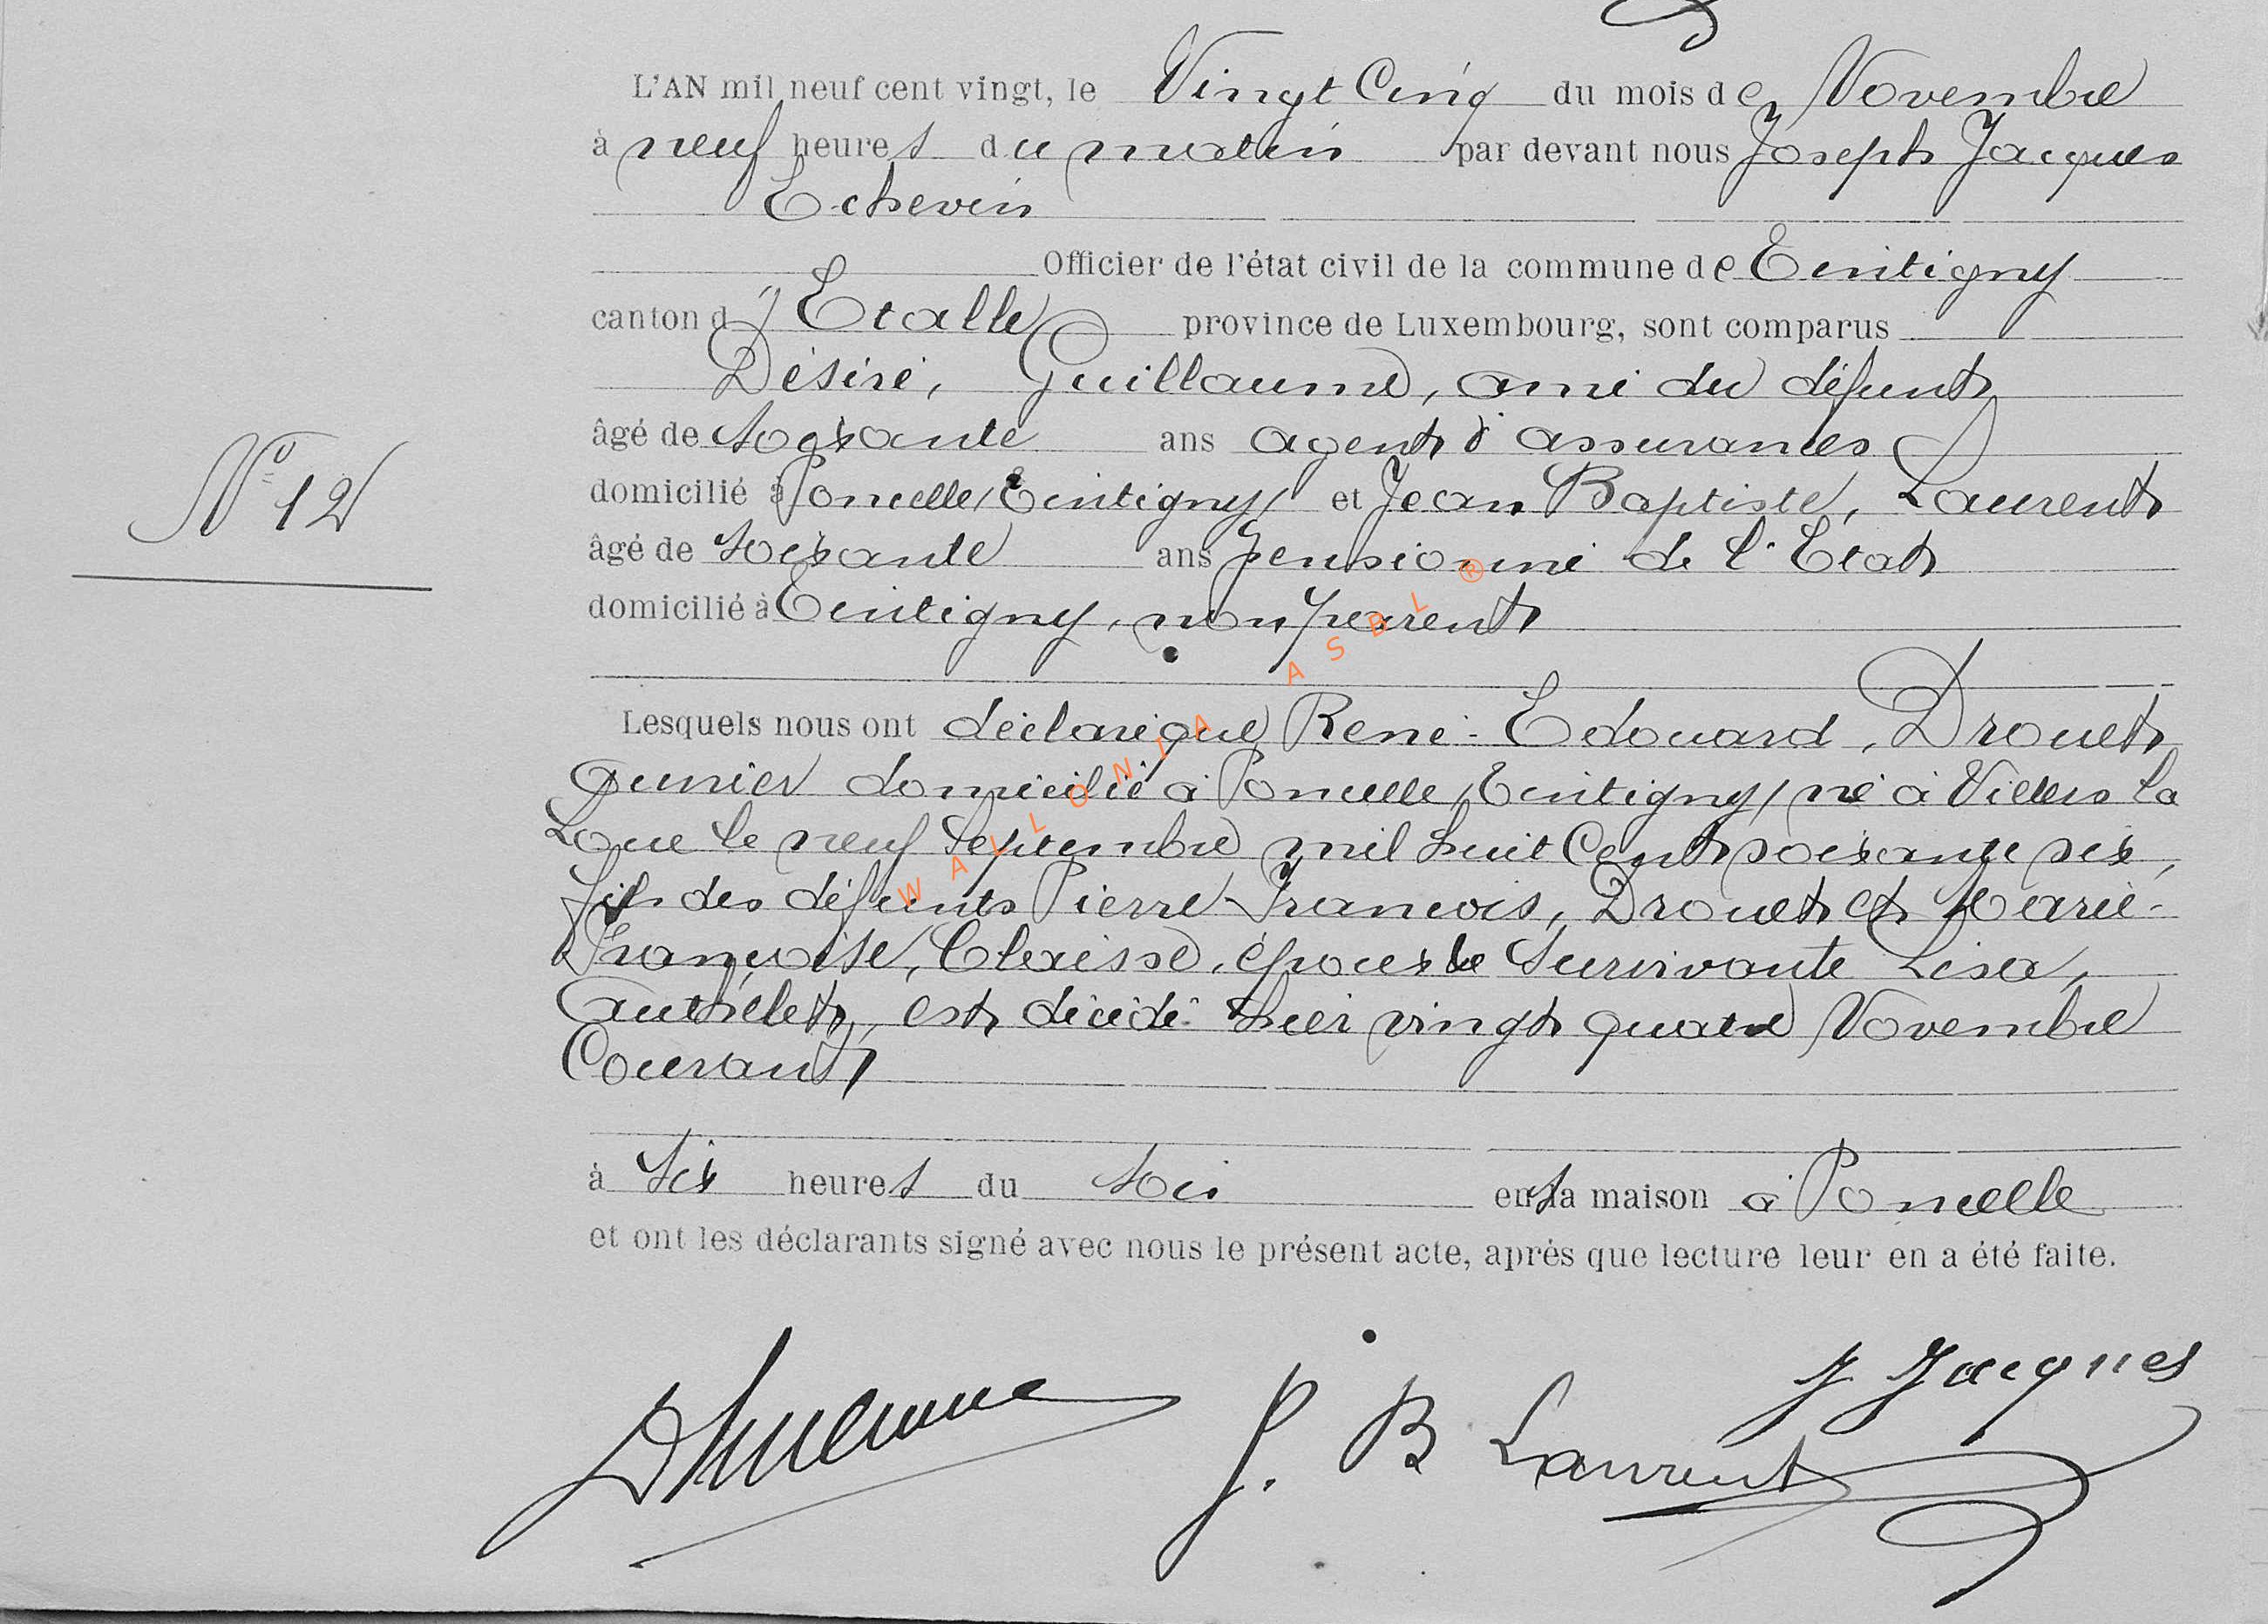 L'AN mil neuf cent vingt, le Vingt Cinq du mois de Novembre
à neuf heures du matin par devant nous Joseph Jacques
Echevin
Officier de l'état civil de la commune de Tintigny
canton d'Etalle province de Luxembourg, sont comparus
Désiré, Guillaume, ami du défunt
âgé de soixante ans agent d'assurances
N° 12
domicilié à Poncelle, Tintigny, et Jean Baptiste, Laurent
âgé de soixante ans pensionné de l'Etat
domicilié à Tintigny, non parent
Lesquels nous ont déclaré que René-Edouard, Drouet
domicilié à Poncelle, Tintigny, né à Villers la
Loue le neuf Septembre mil huit Cent soixante six,
fils des défunts Pierre-François, Drouet et Marie-
Françoise, Clarisse, époux de Survivante Lisa,
est décédé hier vingt quatre Novembre
Courant,
à six heures du soir en sa maison à Poncelle
et ont les déclarants signé avec nous le présent acte, après que lecture leur en a été faite.
J Jacques
J. B Laurent
WALLONIA ASBL ®